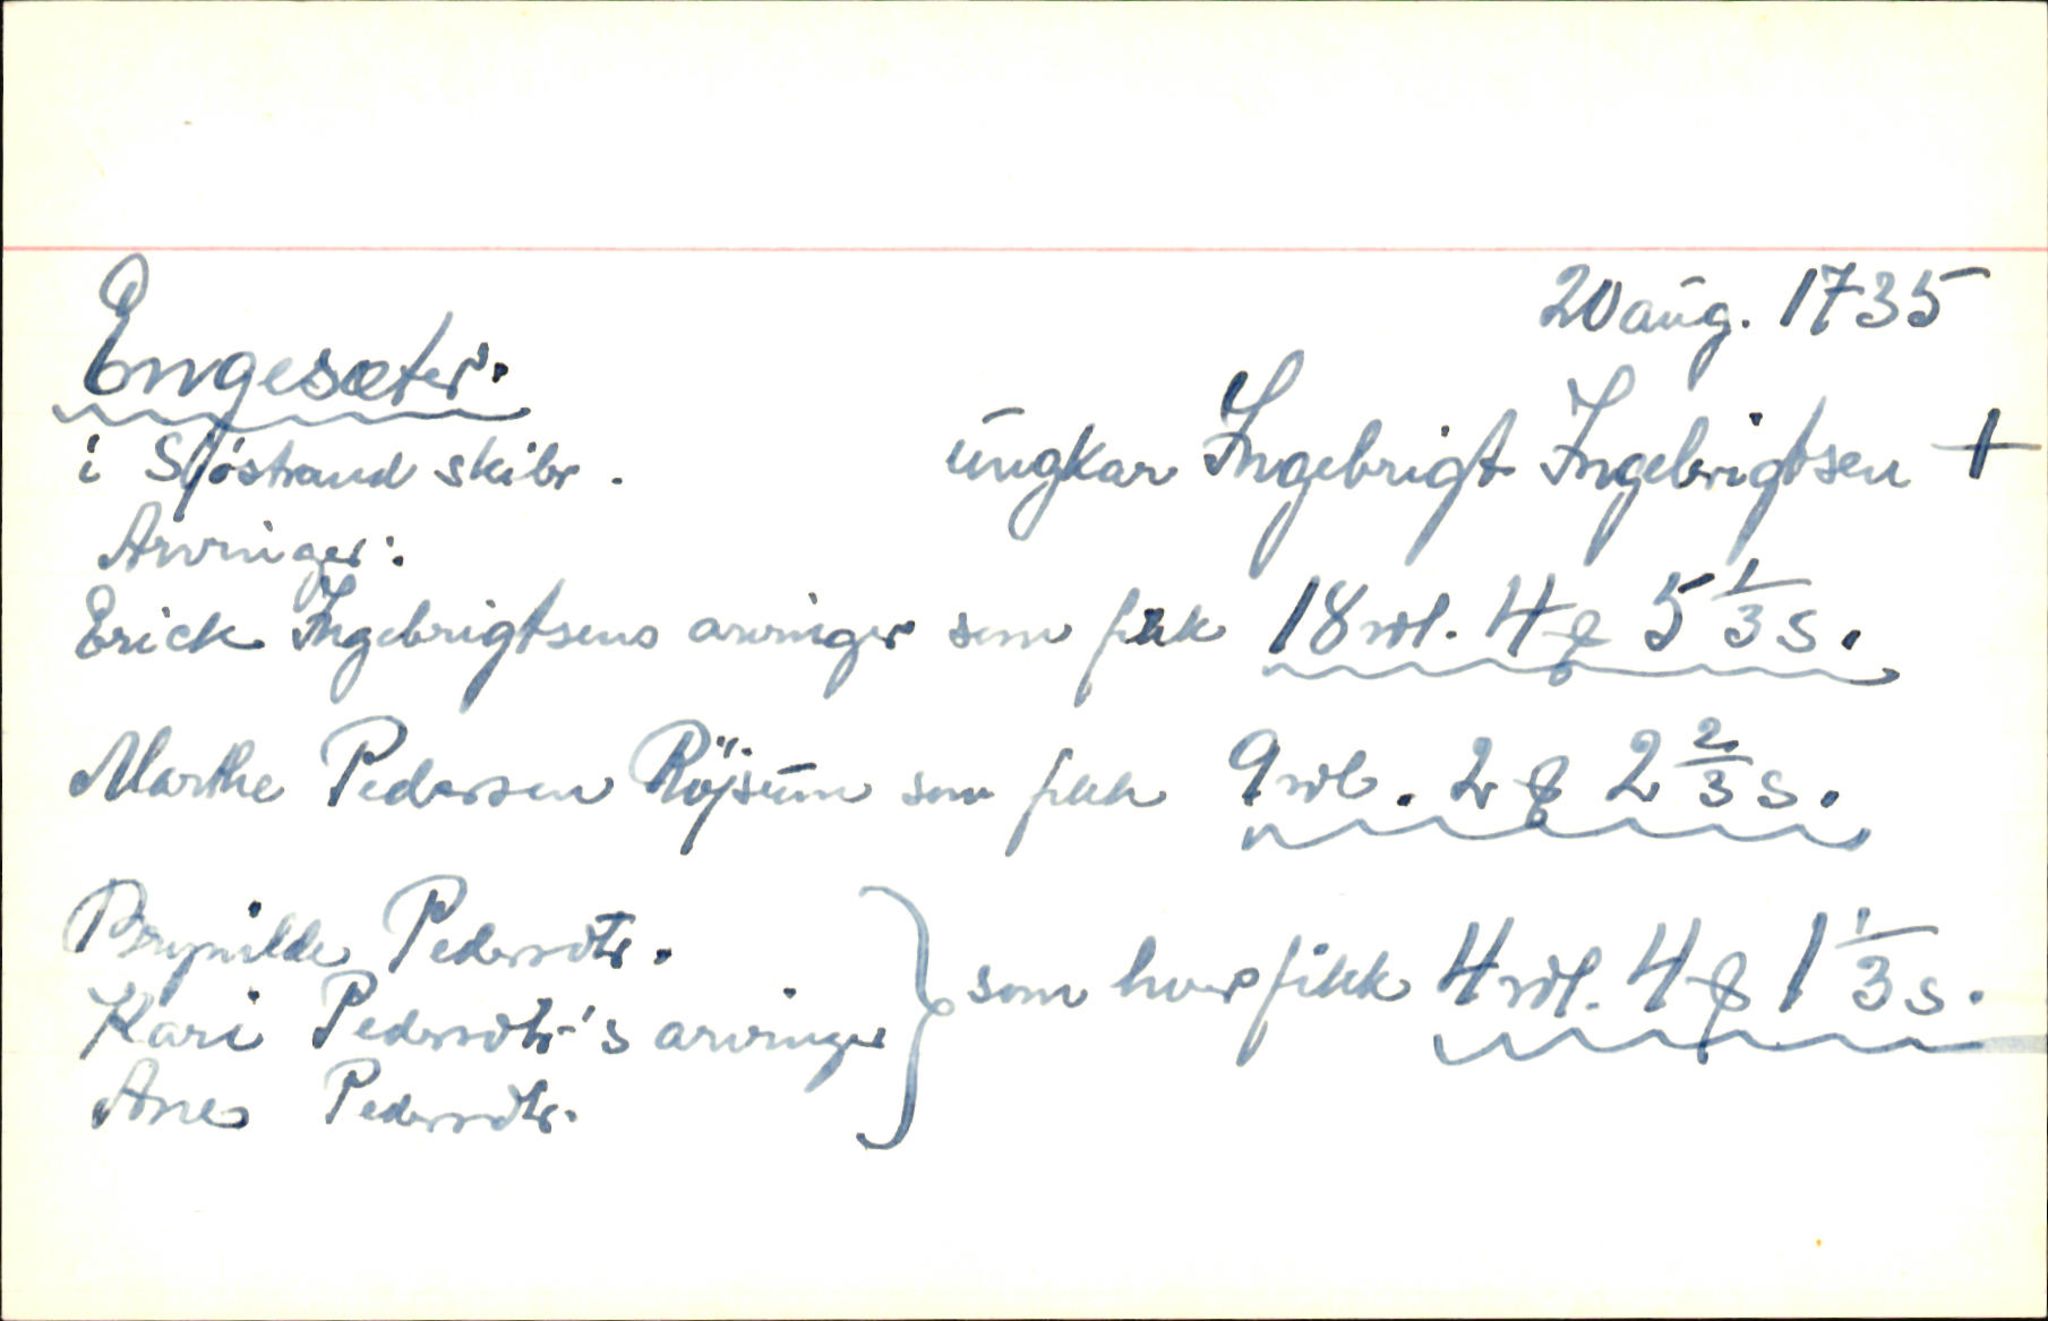 20 aug. 1735
Engesæter.
i Sjöstrand skibr. ungkar Ingebrigt Ingebrigtsen +
Arvinger:
Erick Ingebrigtsens arvinger som fikk 18 rdl. 4 ꝑ 5 1/3 s.
Marthe Pedersen Röjsum som fikk 9 rdl. 2 ꝑ 2 2/3 s.
Brynilde Pedersdtr.
Kari Pedersdtr's arvinger } som hver fikk 4 rdl. 4 ꝑ 1 1/3 s.
Ane Pedersdtr.